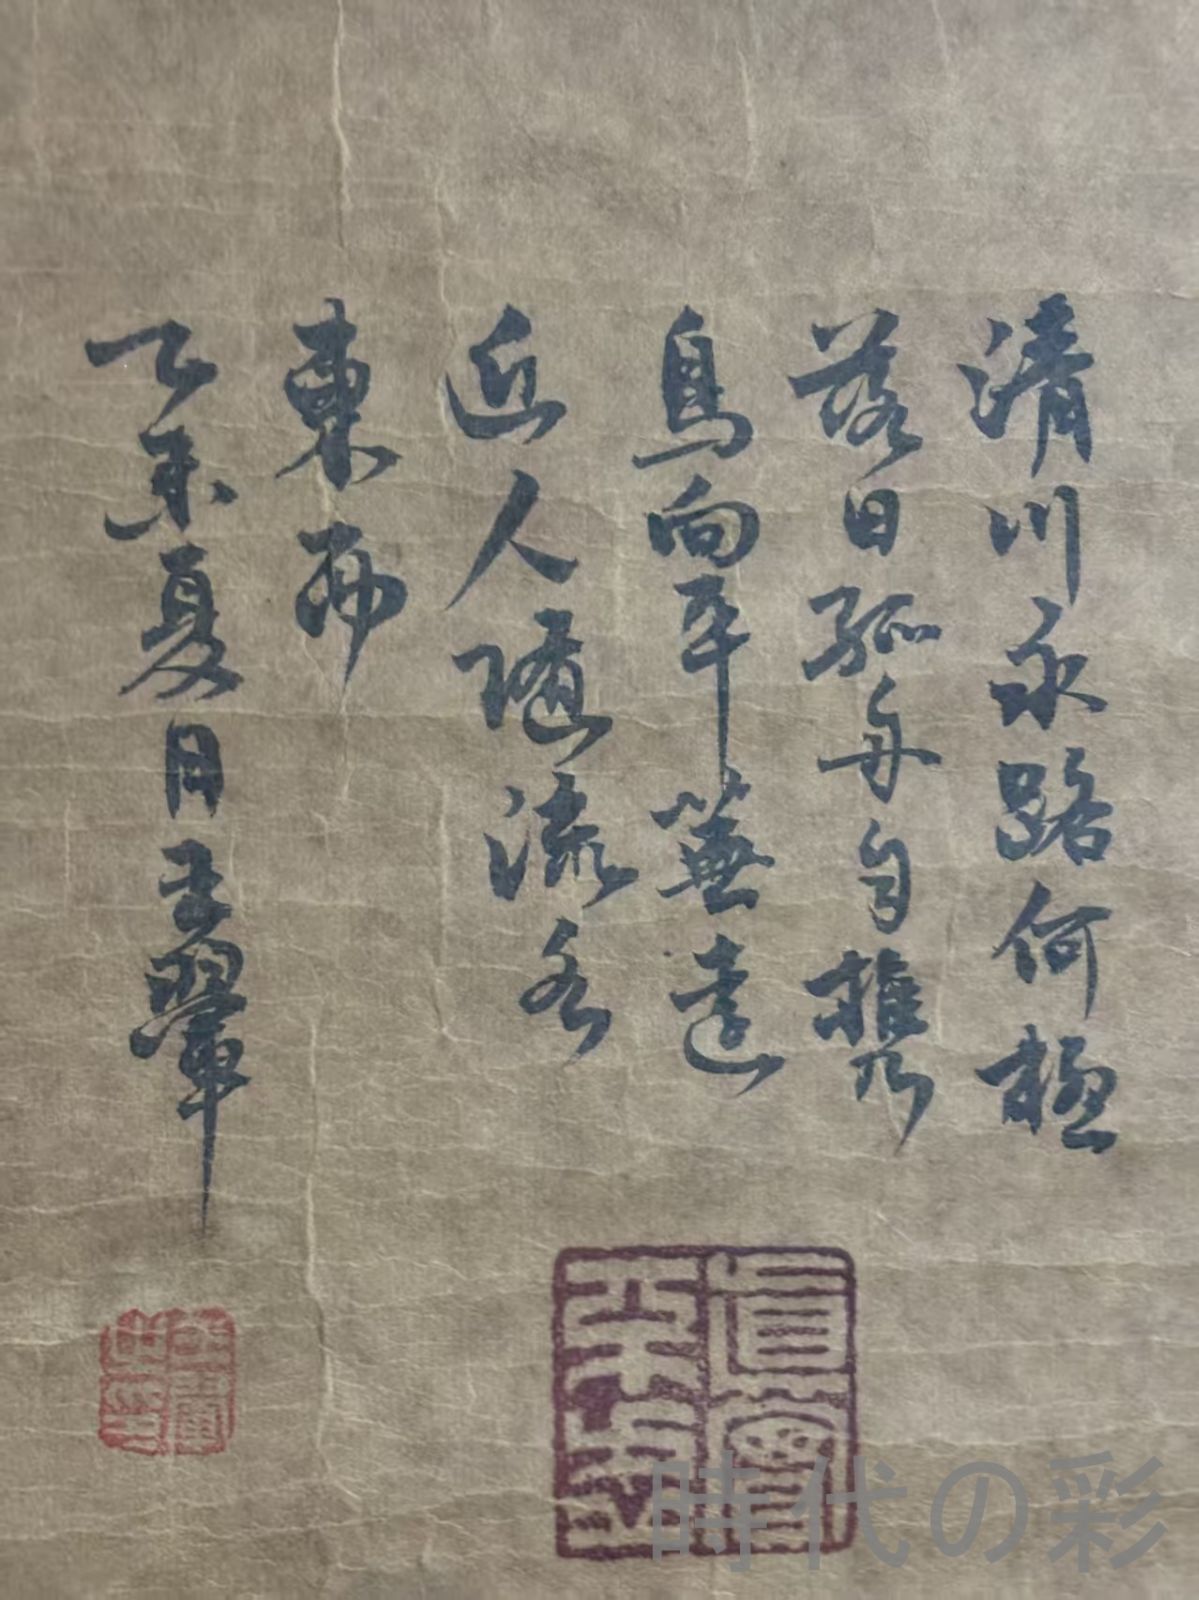 清川永路何極
落日孤舟自携
鳥向平蕪遠
近人隨流水
東西
乙未夏月王翬
王翬之印
時代の彩